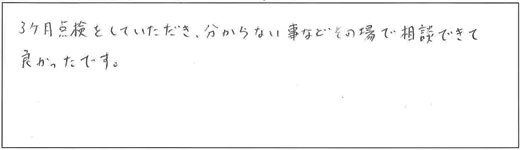 3ヶ月点検をしていただき、分からない事などその場で相談できて
良かったです。